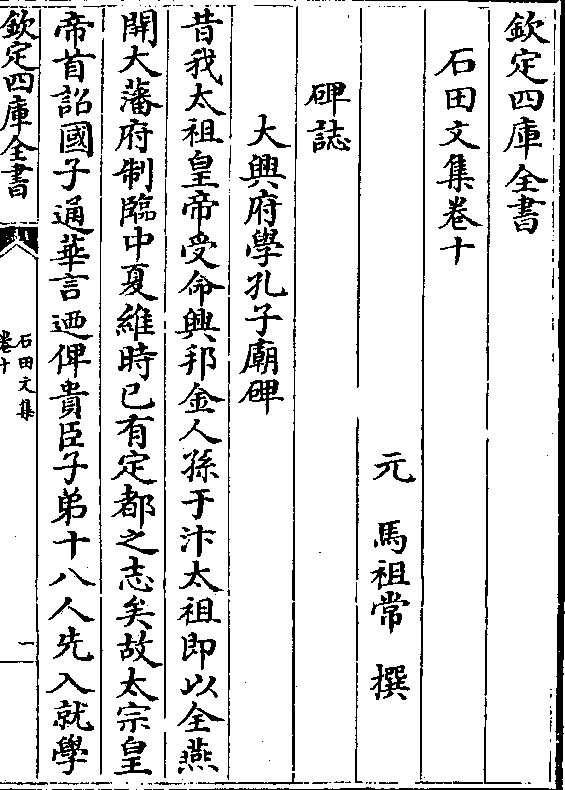 欽定四庫全書
石田文集卷十
元　馬祖常　撰
碑誌
大興府學孔子廟碑
昔我太祖皇帝受命興邦金人孫于汴太祖即以全燕
開大藩府制臨中夏維時已有定都之志矣故太宗皇
帝首詔國子通華言迺俾貴臣子弟十八人先入就學
欽定四庫全書
石田文集
卷十
一